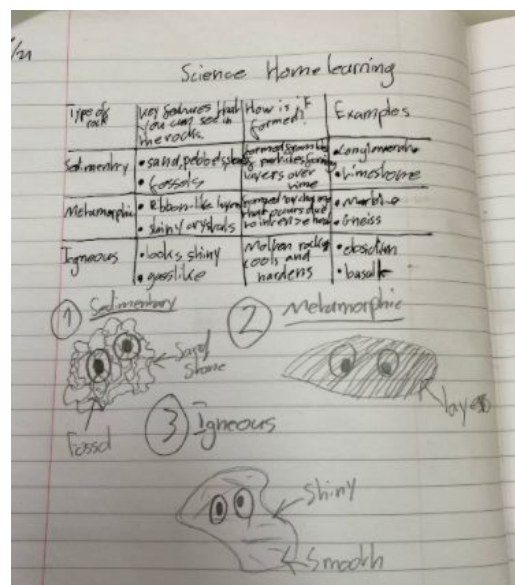 /21
Science Homelearning
Type of rock
key features that you can see in the rocks.
How is it formed?
Examples
Sedimentry
• sand, pebbels,
• fossols
formed from
of particles forming
layers over
time
• Conglomerate
• Limestone
Metamorphic
• Ribbon-like layers
• shiny crystals
formed by change
that occurs due
to intense heat
• Marble
• Gneiss
Igneous
• looks shiny
• gasslike
Molten rock
cools and
hardens
• obsidian
• basalt
1 Sedimentary
2 Metamorphic
Sand
Stone
Fossil
layers
3 Igneous
Shiny
Smooth